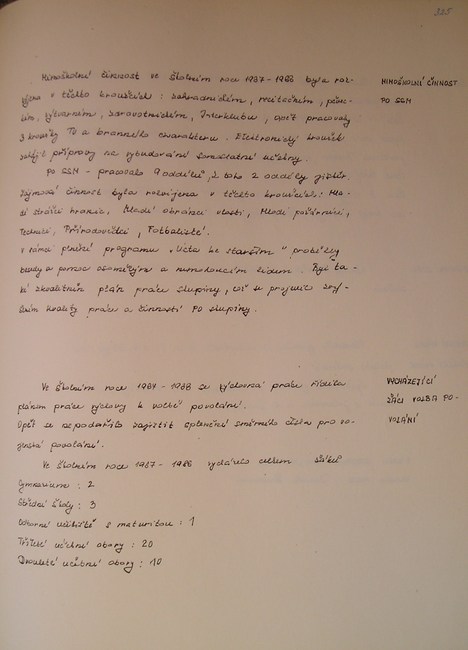 225
Mimoškolní činnost ve školním roce 1987-1988 byla roz-
MIMOŠKOLNÍ ČINNOST
víjena v těchto kroužcích: zahradnickém, recitačním, pěvec-
PO SSM
kém, výtvarném, zdravotnickém, Interklubu, opět pracovaly
3 kroužky TU a branného charakteru. Elektronický kroužek
zahájil přípravy na vybudování samostatné učebny.
PO SSM - pracovalo 9 oddílů, z toho 2 oddíly jisker.
Zájmová činnost byla rozvíjena v těchto kroužcích: Mla-
dí strážci hranic, Mladí obránci vlasti, Mladí požárníci,
Technici, Přírodovědci, Fotbalisté.
V rámci plnění programu "Úcta ke starším" proběhly
besedy a pomoc osamělým a nemohoucím lidem. Byl ta-
ké zkvalitněn plán práce skupiny, což se projevilo zvý-
šením kvality práce a činnosti PO skupiny.
Ve školním roce 1987-1988 se výchovná práce řídila
VYCHÁZEJÍCÍ
plánem práce výchovy k volbě povolání.
ŽÁCI VOLBA PO-
Opět se nepodařilo zajistit splnění směrného čísla pro vo-
VOLÁNÍ
jenská povolání.
Ve školním roce 1987-1988 vycházelo celkem žáků
Gymnasium: 2
Střední školy: 3
Odborné učiliště s maturitou: 1
Tříleté učební obory: 20
Dvouleté učební obory: 10